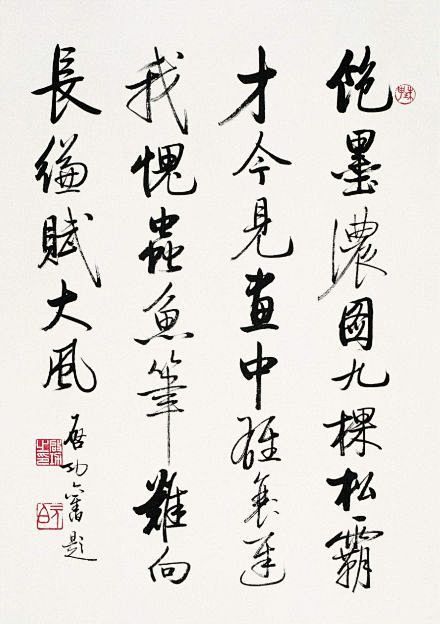 飽墨濃圖九棵松霸
才今見畫中雄衰遲
我愧蟲魚筆難向
長縑賦大風
启功舊題